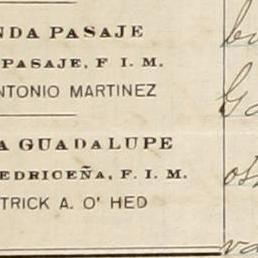 NDA PASAJE
PASAJE, F I. M.
NTONIO MARTINEZ
A GUADALUPE
EDRICEÑA, F. I. M.
TRICK A. O' HED